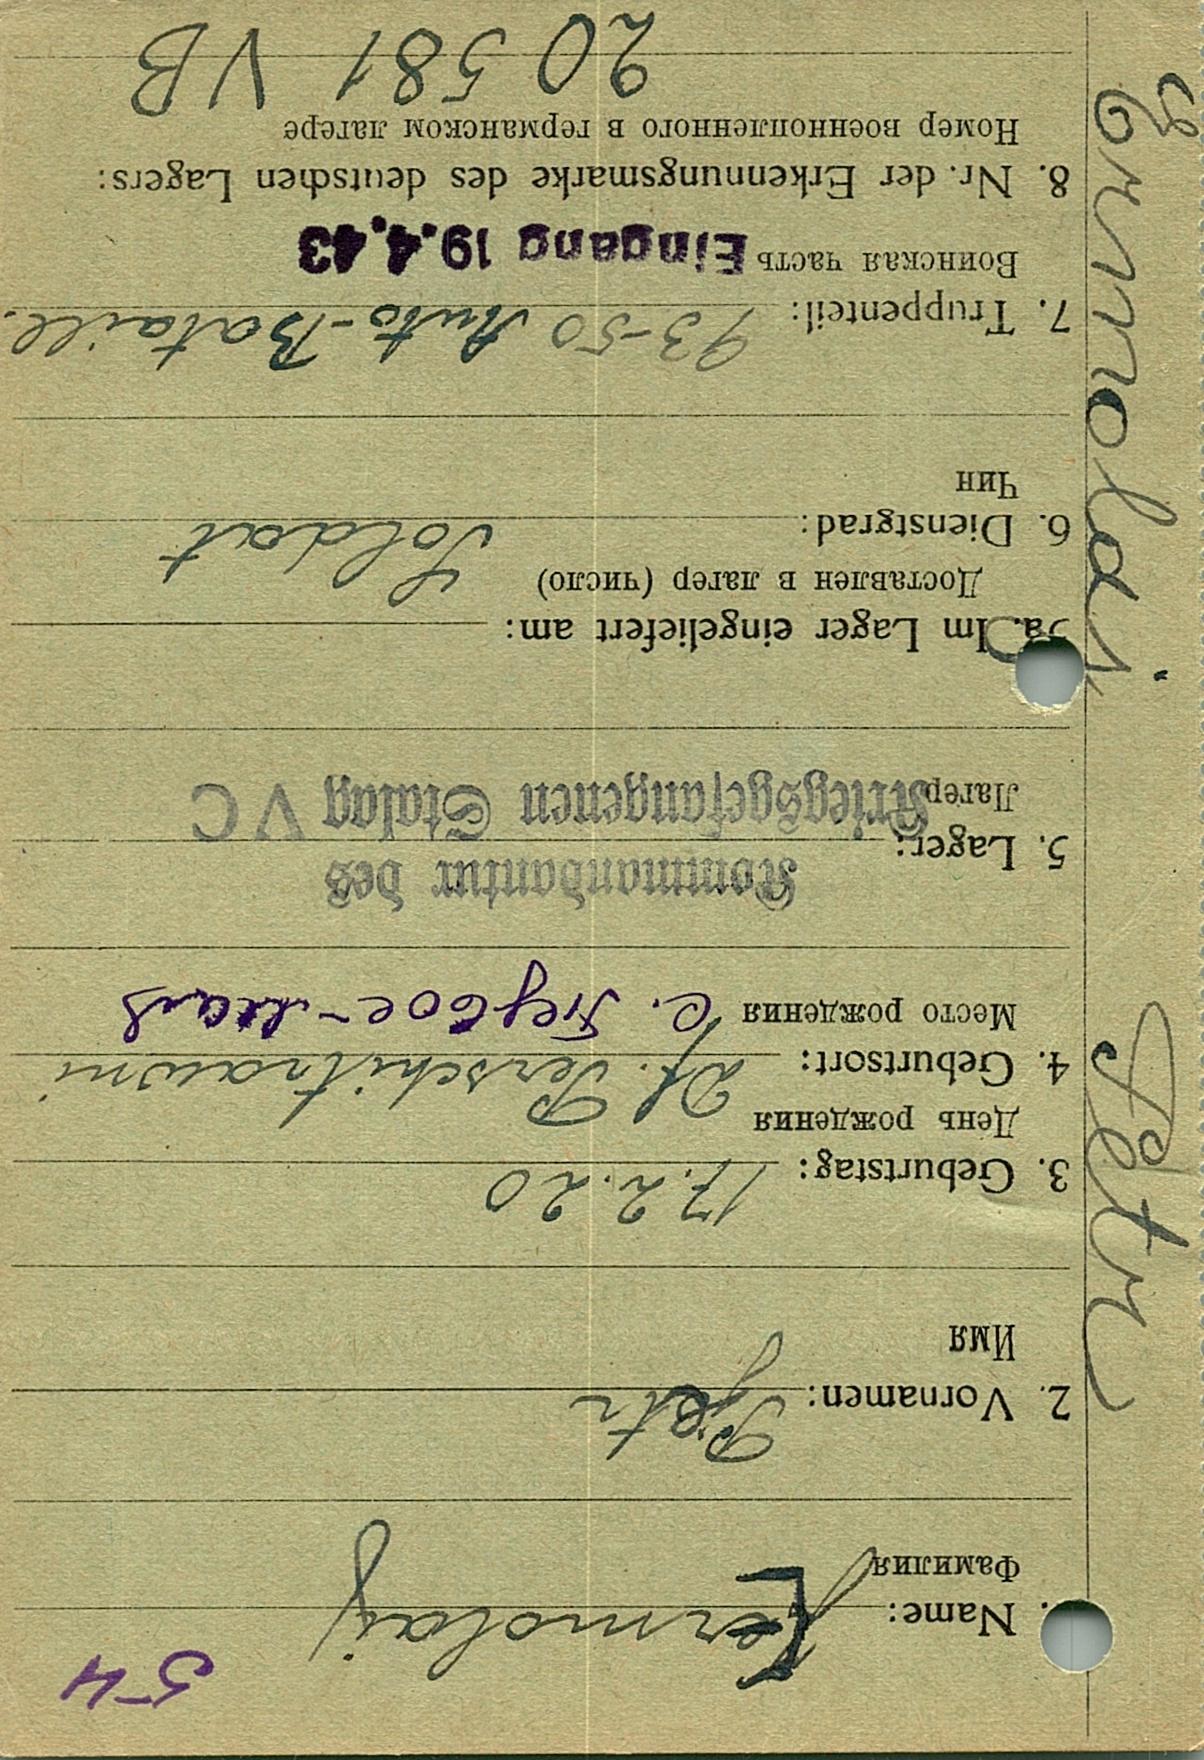 54
. Name: Jermolaij
Фамилия
2. Vornamen: Pjetr
Имя
3. Geburtstag: 17.2.20
День рождения
4. Geburtsort: Df.
Место рождения с.
Kommandantur des
5. Lager:
Kriegsgefangenen Stalag V C
Лагер
5a. Im Lager eingeliefert am:
Доставлен в лагер (число)
6. Dienstgrad: Soldat
Чин
7. Truppenteil: 93-50 Auto-Bataill.
Воинская часть Eingang 19.4.43
8. Nr. der Erkennungsmarke des deutschen Lagers:
Номер военнопленного в германском лагере
20 581 VB
Petr